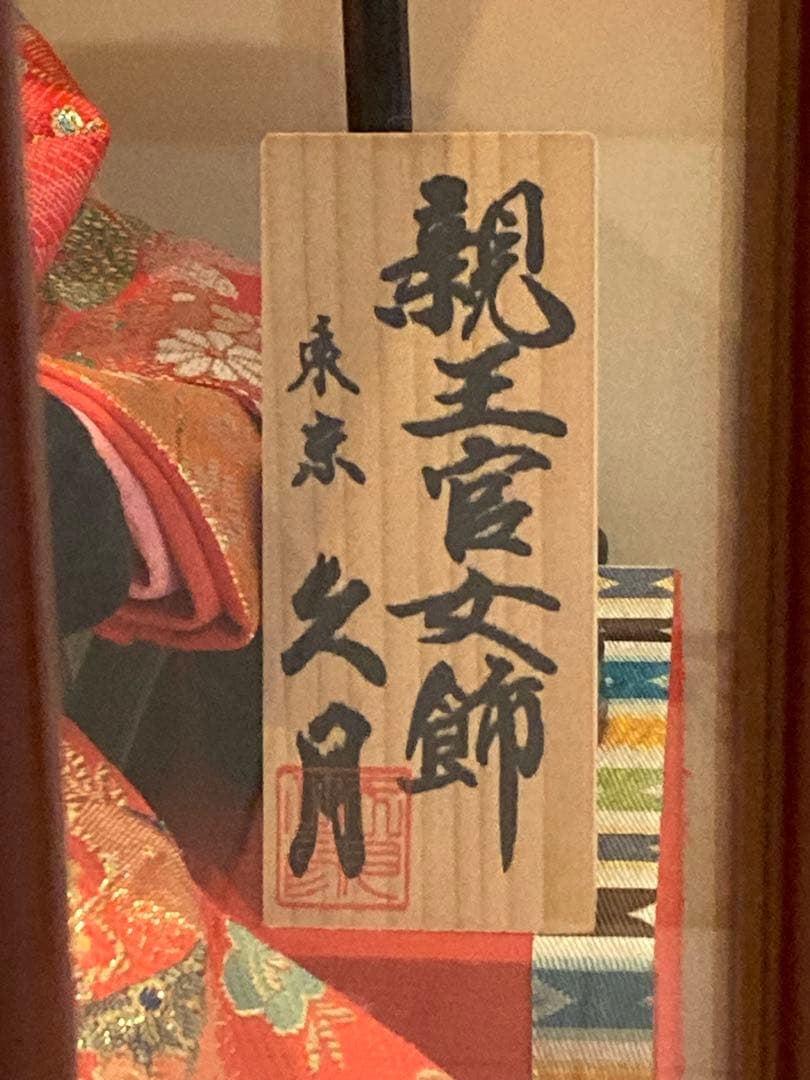 親王官女飾
東京 久月